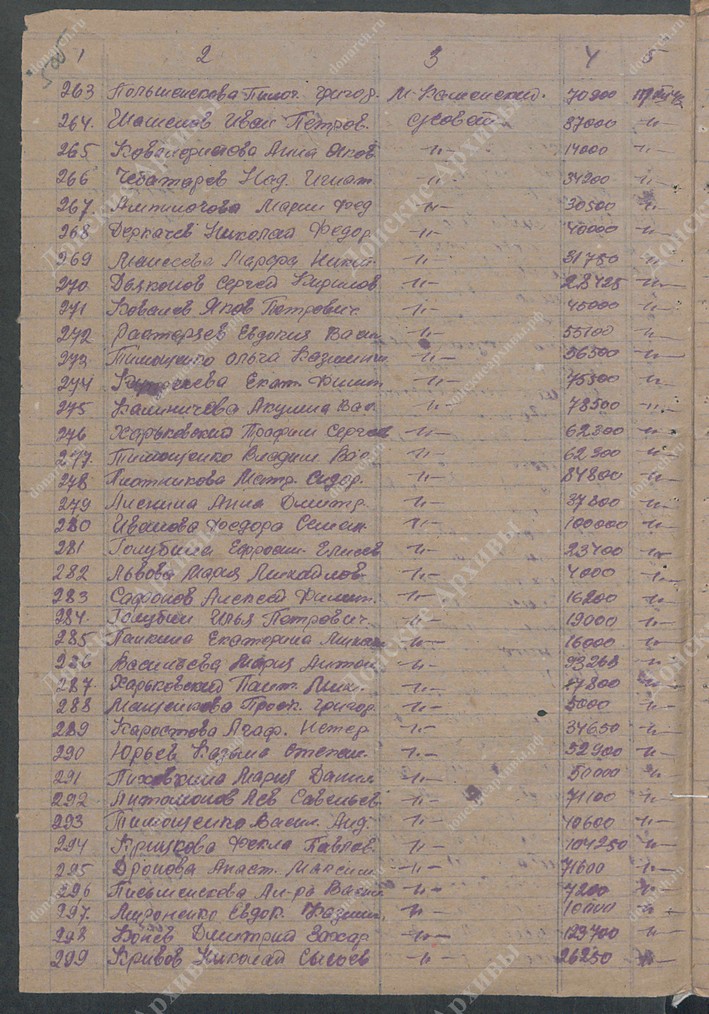 1 2 3 4 5
263 Григор. М-Каменский 70200
264. Иван Петров. сусовет 87000 -"-
265 Анна Яков -"- 14000 -"-
266 Чеботарев Над. Игнат -"- 34200 -"-
267. Мария Фед -"- 30500 -"-
268 Деркачев Николай Федор. -"- 40000 -"-
269 Моисеева Марфа Никит -"- 31750 -"-
270 Дьяконов Сергей Кирилов -"- 28425 -"-
271 Ковалев Яков Петрович -"- 45000 -"-
272 Растеряев Евдокия Васил -"- 55100 -"-
273 Тимощенко Ольга -"- 56500 -"-
274 Екат. Димит -"- 75300 -"-
275 Калиничева Акулина Вас. -"- 78500 -"-
276 Харьковский Трафим Сергеев -"- 62300 -"-
277. Тимощенко Владим Вас -"- 62300 -"-
278 Плотникова Матр. Сидор. -"- 84800 -"-
279 Анна Дмитр. -"- 37800 -"-
280 Иванова Федора Семен. -"- 100000 -"-
281 Голубина Ефросин. Елисеев -"- 23400 -"-
282 Львова Мария Михайлов -"- 4000 -"-
283 Сафонов Алексей Димит. -"- 16200 -"-
284. Голубин Илья Петрович -"- 19000 -"-
285 Екатерина -"- 16000 -"-
286 Васильева Мария Антон -"- 93268 -"-
287. Харьковский Пант. -"- -"-
288 Прок. Григор. -"- 5000 -"-
289 Каростова Агаф. -"- 34650 -"-
290 Юрьев Казьма Степан. -"- 52900 -"-
291 Мария Данил -"- 50000 -"-
292 Антомонов Лев Савельев -"- 71100 -"-
293 Тимощенко Васил. Анд. -"- 10600 -"-
294 Крюкова Фекла Павлов -"- 104250 -"-
295 Дронова Анаст. Максим -"- 71600 -"-
296 Письменскова Ал-ра Васил -"- 7200 -"-
297. Мироненко Евдок. -"- 10000 -"-
298 Дмитрий Захар. -"- 129700 -"-
299 Кривов Николай Сысоев -"- 26250 -"-
Донские Архивы
donarch.ru